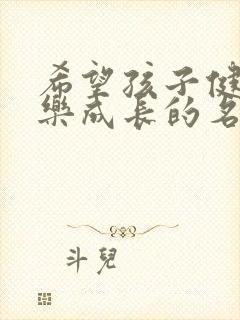 希望孩子健
樂成長的名
斗兒